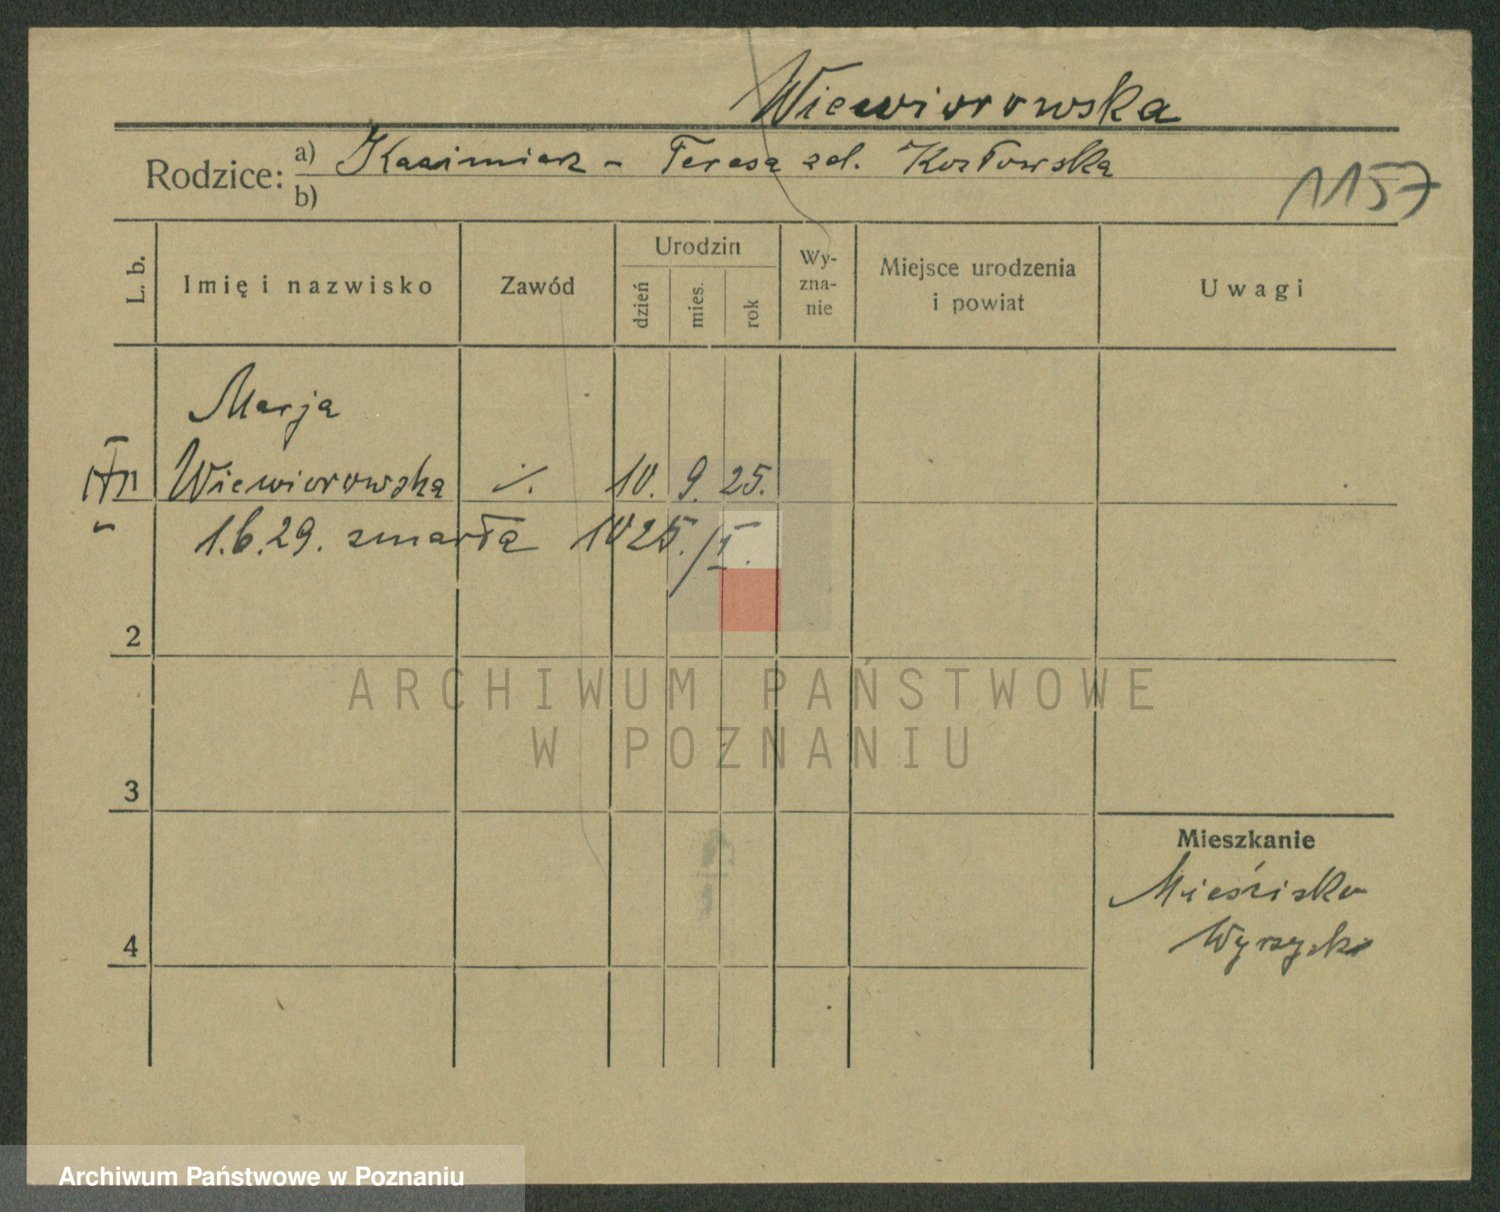 Wiewiorowska
Rodzice: a) Kazimierz - Teresa zd. Kozłowska
b)
1157
L. b.
Imię i nazwisko
Zawód
Urodzin
dzień
mies.
rok
Wy-
zna-
nie
Miejsce urodzenia
i powiat
Uwagi
Marja
Wiewiorowska ./. 10. 9. 25.
1.6.29. zmarła 1025./I.
2
3
4
Mieszkanie
Mieścisko
ARCHIWUM PAŃSTWOWE
W POZNANIU
Archiwum Państwowe w Poznaniu